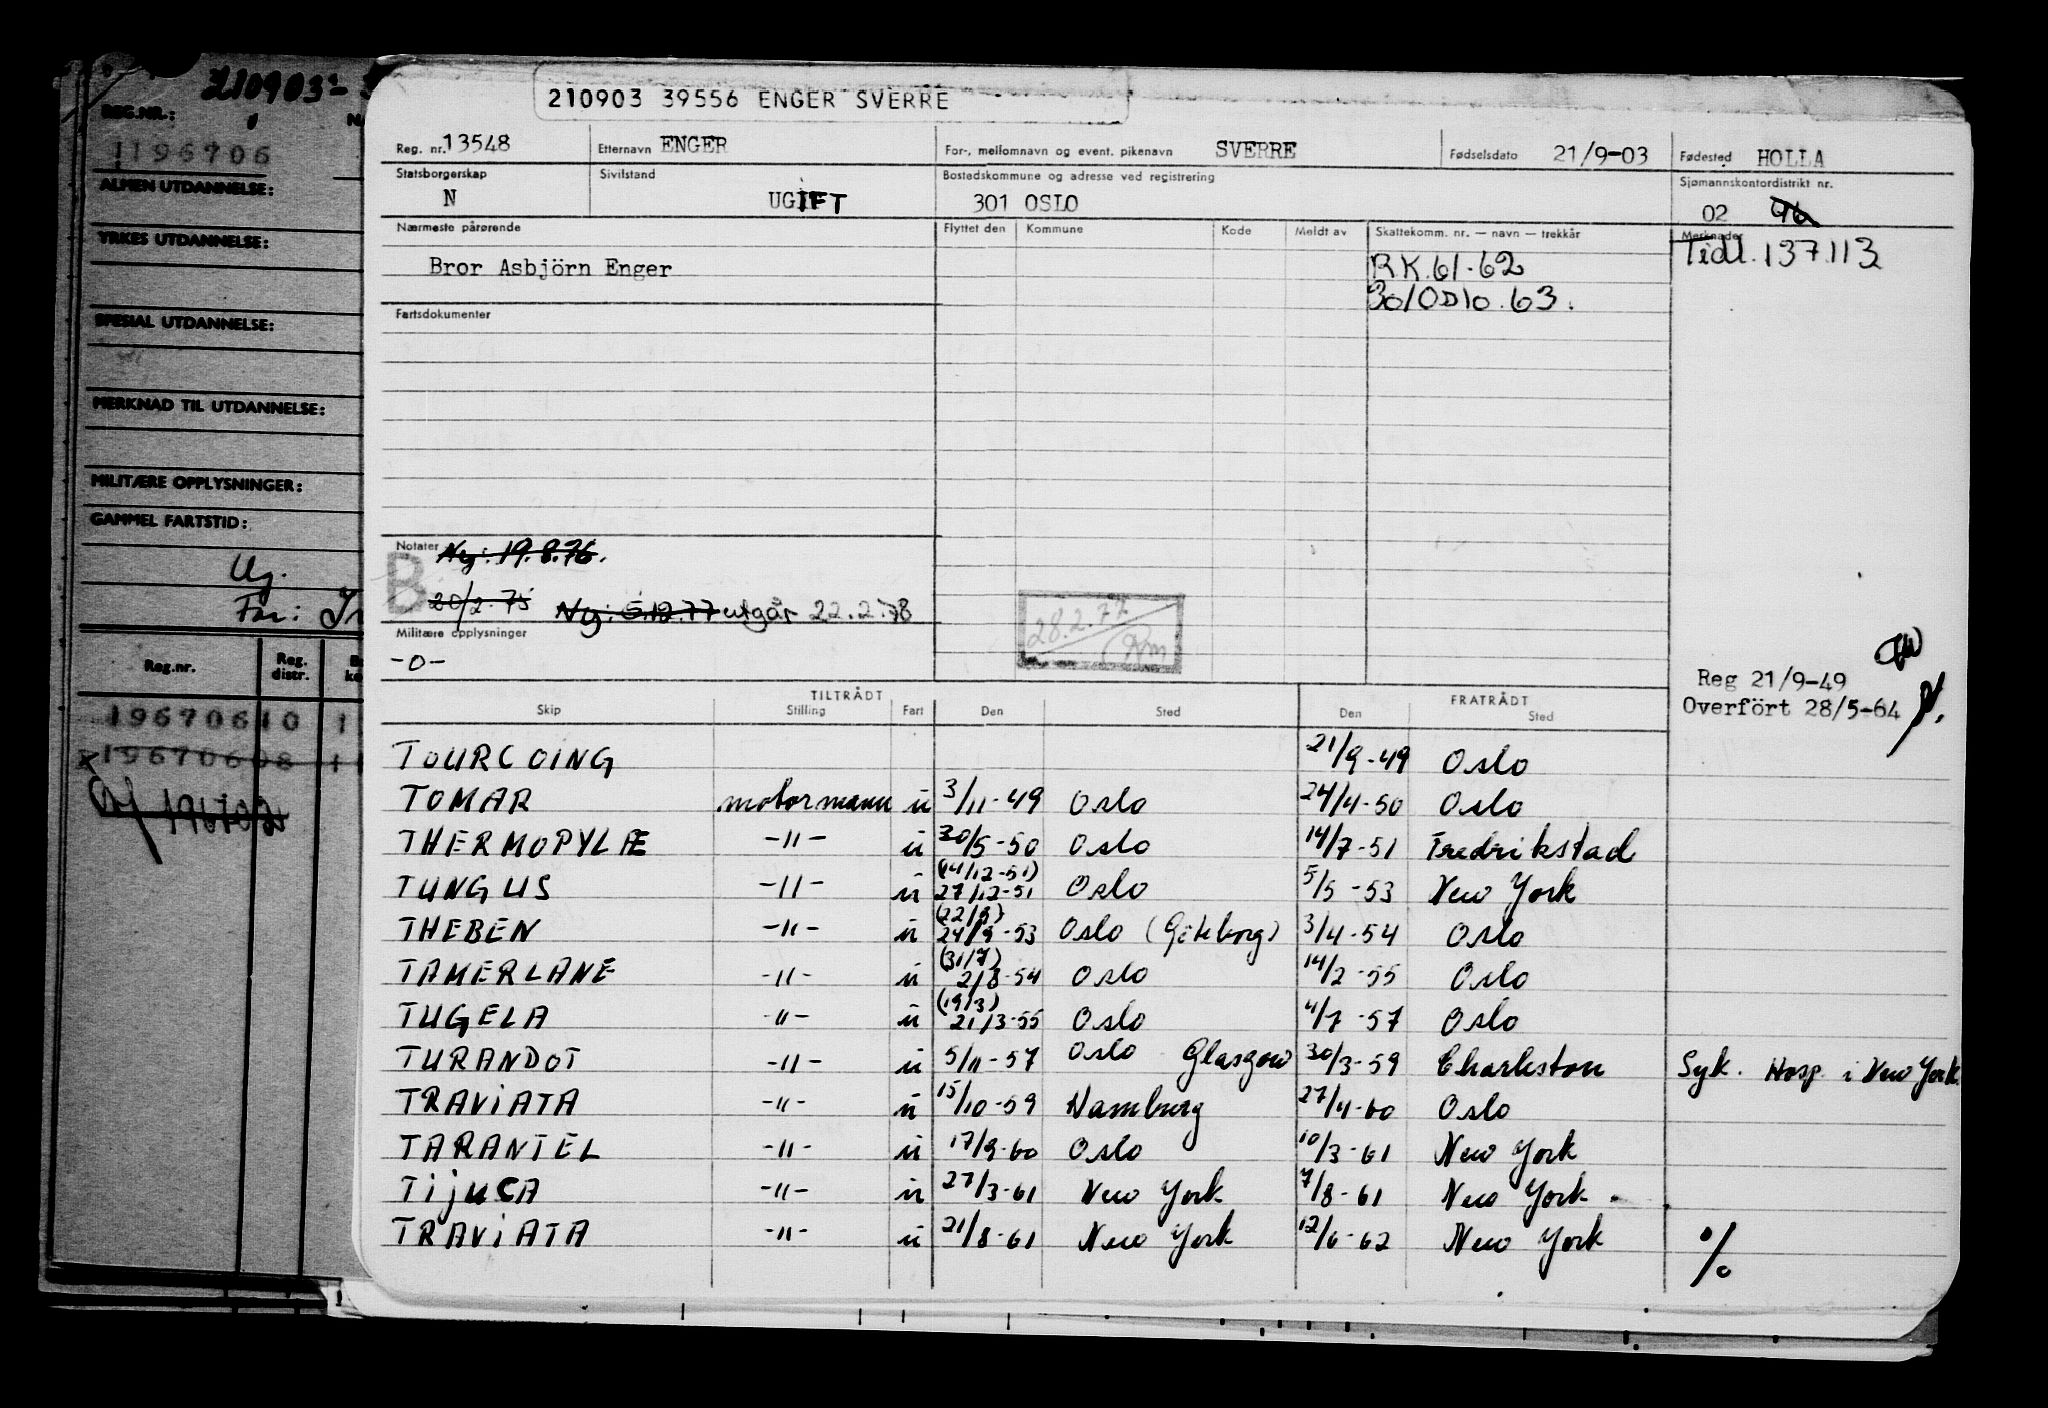 210903
REG.NR.:
1196706
ALMEN UTDANNELSE:
YRKES UTDANNELSE:
SPESIAL UTDANNELSE:
MERKNAD TIL UTDANNELSE:
MILITÆRE OPPLYSNINGER:
GAMMEL FARTSTID:
Ug.
Far:
Reg.nr. Reg. distr.
19670610 1
19670608 11
210903 39556 ENGER SVERRE
Reg. nr. 13548 Etternavn ENGER For-, mellomnavn og event. pikenavn SVERRE Fødselsdato 21/9-03 Fødested HOLLA
Statsborgerskap Sivilstand Bostedskommune og adresse ved registrering Sjømannskontordistrikt nr.
N UGIFT 301 OSLO 02 96
Nærmeste pårørende Flyttet den Kommune Kode Meldt av Skattekomm. nr. — navn — trekkår Merknader
Bror Asbjörn Enger RK.61-62 Tidl. 137.113
63.
Fartsdokumenter
Notater Ny: 19.8.76.
B
20/2.75 Ny: 5.12.77 utgår 22.2.78
28.2.77
Militære opplysninger
-0-
Reg 21/9-49
Overfört 28/5-64
TILTRÅDT FRATRÅDT
Skip Stilling Fart Den Sted Den Sted
TOURCOING 21/9-49 Oslo
TOMAR motormann u 3/11-49 Oslo 24/4-50 Oslo
THERMOPYLÆ -"- u 30/5-50 Oslo 14/7-51 Fredrikstad
TUNGUS -"- u (14/12-51) 27/12-51 Oslo 5/5-53 New York
THEBEN -"- u (22/9) 24/9-53 Oslo (Göteborg) 3/4-54 Oslo
TAMERLANE -"- u (31/7) 2/8-54 Oslo 14/2-55 Oslo
TUGELA -"- u (19/3) 21/3-55 Oslo 4/7-57 Oslo
TURANDOT -"- u 5/11-57 Oslo Glasgow 30/3-59 Charleston Syk. Hosp. i New York
TRAViATA -"- u 15/10-59 Hamburg 27/4-60 Oslo
TARANTEL -"- u 17/9-60 Oslo 10/3-61 New York
TijuCA -"- u 27/3-61 New York 7/8-61 New York.
TRAViATA -"- u 21/8-61 New York 12/6-62 New York %